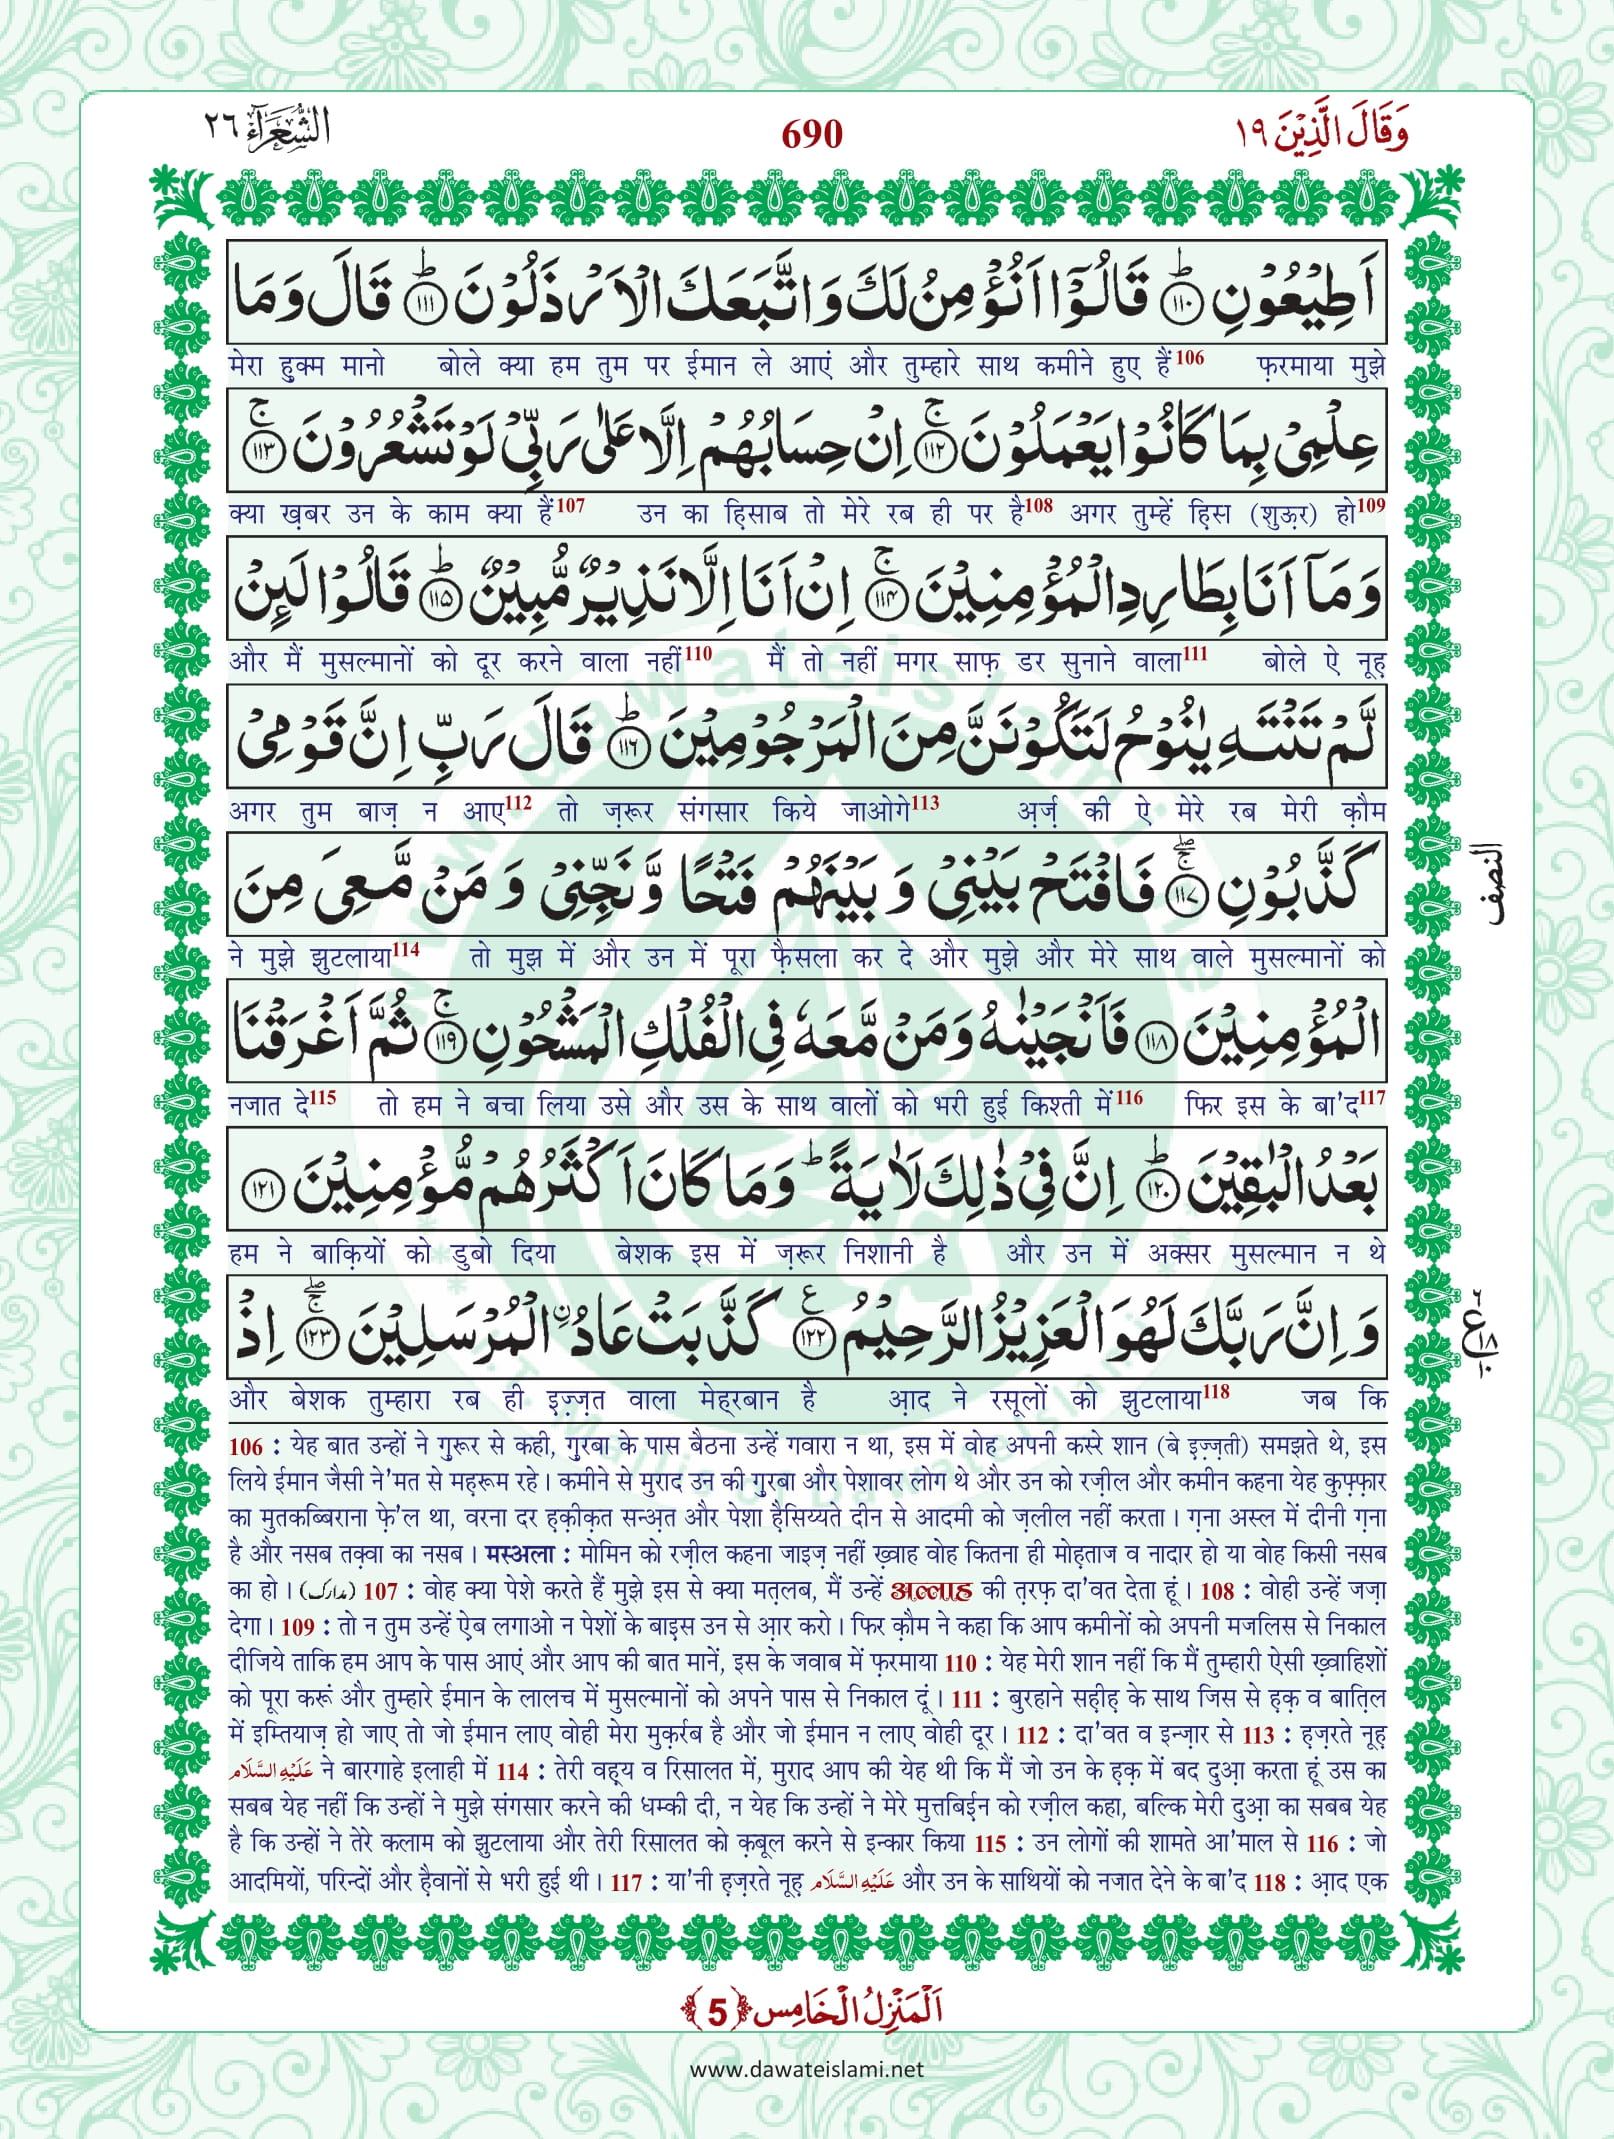 وَقَالَ الَّذِيْنَ ١٩ 690 الشُّعَرَآء ٢٦
اَطِيْعُوْنِ ؕ﴿١١٠﴾ قَالُوْۤا اَنُؤْمِنُ لَكَ وَ اتَّبَعَكَ الْاَرْذَلُوْنَ ؕ﴿١١١﴾ قَالَ وَ مَا
मेरा हुक्म मानो बोले क्या हम तुम पर ईमान ले आएं और तुम्हारे साथ कमीने हुए हैं106 फ़रमाया मुझे
عِلْمِيْ بِمَا كَانُوْا يَعْمَلُوْنَ ۚ﴿١١٢﴾ اِنْ حِسَابُهُمْ اِلَّا عَلٰى رَبِّيْ لَوْ تَشْعُرُوْنَ ۚ﴿١١٣﴾
क्या ख़बर उन के काम क्या हैं107 उन का हिसाब तो मेरे रब ही पर है108 अगर तुम्हें हिस (शुऊर) हो109
وَ مَاۤ اَنَا بِطَارِدِ الْمُؤْمِنِيْنَ ۚ﴿١١٤﴾ اِنْ اَنَا اِلَّا نَذِيْرٌ مُّبِيْنٌ ؕ﴿١١٥﴾ قَالُوْا لَىِٕنْ
और मैं मुसल्मानों को दूर करने वाला नहीं110 मैं तो नहीं मगर साफ़ डर सुनाने वाला111 बोले ऐ नूह़
لَّمْ تَنْتَهِ يٰنُوْحُ لَتَكُوْنَنَّ مِنَ الْمَرْجُوْمِيْنَ ؕ﴿١١٦﴾ قَالَ رَبِّ اِنَّ قَوْمِيْ
अगर तुम बाज़ न आए112 तो ज़रूर संगसार किये जाओगे113 अ़र्ज़ की ऐ मेरे रब मेरी क़ौम
كَذَّبُوْنِ ۚۖ﴿١١٧﴾ فَافْتَحْ بَيْنِيْ وَ بَيْنَهُمْ فَتْحًا وَّ نَجِّنِيْ وَ مَنْ مَّعِيَ مِنَ
النصف
ने मुझे झुटलाया114 तो मुझ में और उन में पूरा फ़ैसला कर दे और मुझे और मेरे साथ वाले मुसल्मानों को
الْمُؤْمِنِيْنَ ﴿١١٨﴾ فَاَنْجَيْنٰهُ وَ مَنْ مَّعَهٗ فِي الْفُلْكِ الْمَشْحُوْنِ ۚ﴿١١٩﴾ ثُمَّ اَغْرَقْنَا
नजात दे115 तो हम ने बचा लिया उसे और उस के साथ वालों को भरी हुई किश्ती में116 फिर इस के बा'द117
بَعْدُ الْبٰقِيْنَ ؕ﴿١٢٠﴾ اِنَّ فِيْ ذٰلِكَ لَاٰيَةً ؕ وَ مَا كَانَ اَكْثَرُهُمْ مُّؤْمِنِيْنَ ﴿١٢١﴾
हम ने बाक़ियों को डुबो दिया बेशक इस में ज़रूर निशानी है और उन में अक्सर मुसल्मान न थे
وَ اِنَّ رَبَّكَ لَهُوَ الْعَزِيْزُ الرَّحِيْمُ ﴿١٢٢﴾ كَذَّبَتْ عَادُ ِ۟الْمُرْسَلِيْنَ ۚۖ﴿١٢٣﴾ اِذْ
और बेशक तुम्हारा रब ही इ़ज़्ज़त वाला मेहरबान है आ़द ने रसूलों को झुटलाया118 जब कि
106 : येह बात उन्हों ने गुरूर से कही, गुरबा के पास बैठना उन्हें गवारा न था, इस में वोह अपनी कस्रे शान (बे इ़ज़्ज़ती) समझते थे, इस
लिये ईमान जैसी ने'मत से महरूम रहे। कमीने से मुराद उन की गुरबा और पेशावर लोग थे और उन को रज़ील और कमीन कहना येह कुफ़्फ़ार
का मुतकब्बिराना फ़े'ल था, वरना दर हक़ीक़त सन्अ़त और पेशा हैसिय्यते दीन से आदमी को ज़लील नहीं करता। ग़ना अस्ल में दीनी ग़ना
है और नसब तक़्वा का नसब। मस्अला : मोमिन को रज़ील कहना जाइज़ नहीं ख़्वाह वोह कितना ही मोहताज व नादार हो या वोह किसी नसब
का हो। (مدارک) 107 : वोह क्या पेशे करते हैं मुझे इस से क्या मत़लब, मैं उन्हें अल्लाह की त़रफ़ दा'वत देता हूं। 108 : वोही उन्हें जज़ा
देगा। 109 : तो न तुम उन्हें ऐब लगाओ न पेशों के बाइस उन से आ़र करो। फिर क़ौम ने कहा कि आप कमीनों को अपनी मजलिस से निकाल
दीजिये ताकि हम आप के पास आएं और आप की बात मानें, इस के जवाब में फ़रमाया 110 : येह मेरी शान नहीं कि मैं तुम्हारी ऐसी ख़्वाहिशों
को पूरा करूं और तुम्हारे ईमान के लालच में मुसल्मानों को अपने पास से निकाल दूं। 111 : बुरहाने सह़ीह़ के साथ जिस से ह़क़ व बात़िल
में इम्तियाज़ हो जाए तो जो ईमान लाए वोही मेरा मुक़र्रब है और जो ईमान न लाए वोही दूर। 112 : दा'वत व इन्ज़ार से 113 : ह़ज़रते नूह़
عَلَيْهِ السَّلَام ने बारगाहे इलाही में 114 : तेरी वह़्य व रिसालत में, मुराद आप की येह थी कि मैं जो उन के ह़क़ में बद दुआ़ करता हूं उस का
सबब येह नहीं कि उन्हों ने मुझे संगसार करने की धम्की दी, न येह कि उन्हों ने मेरे मुत्तबिईन को रज़ील कहा, बल्कि मेरी दुआ़ का सबब येह
है कि उन्हों ने तेरे कलाम को झुटलाया और तेरी रिसालत को क़बूल करने से इन्कार किया 115 : उन लोगों की शामते आ'माल से 116 : जो
आदमियों, परिन्दों और हैवानों से भरी हुई थी। 117 : या'नी ह़ज़रते नूह़ عَلَيْهِ السَّلَام और उन के साथियों को नजात देने के बा'द 118 : आ़द एक
اَلْمَنْزِلُ الْخَامِس ﴿5﴾
www.dawateislami.net